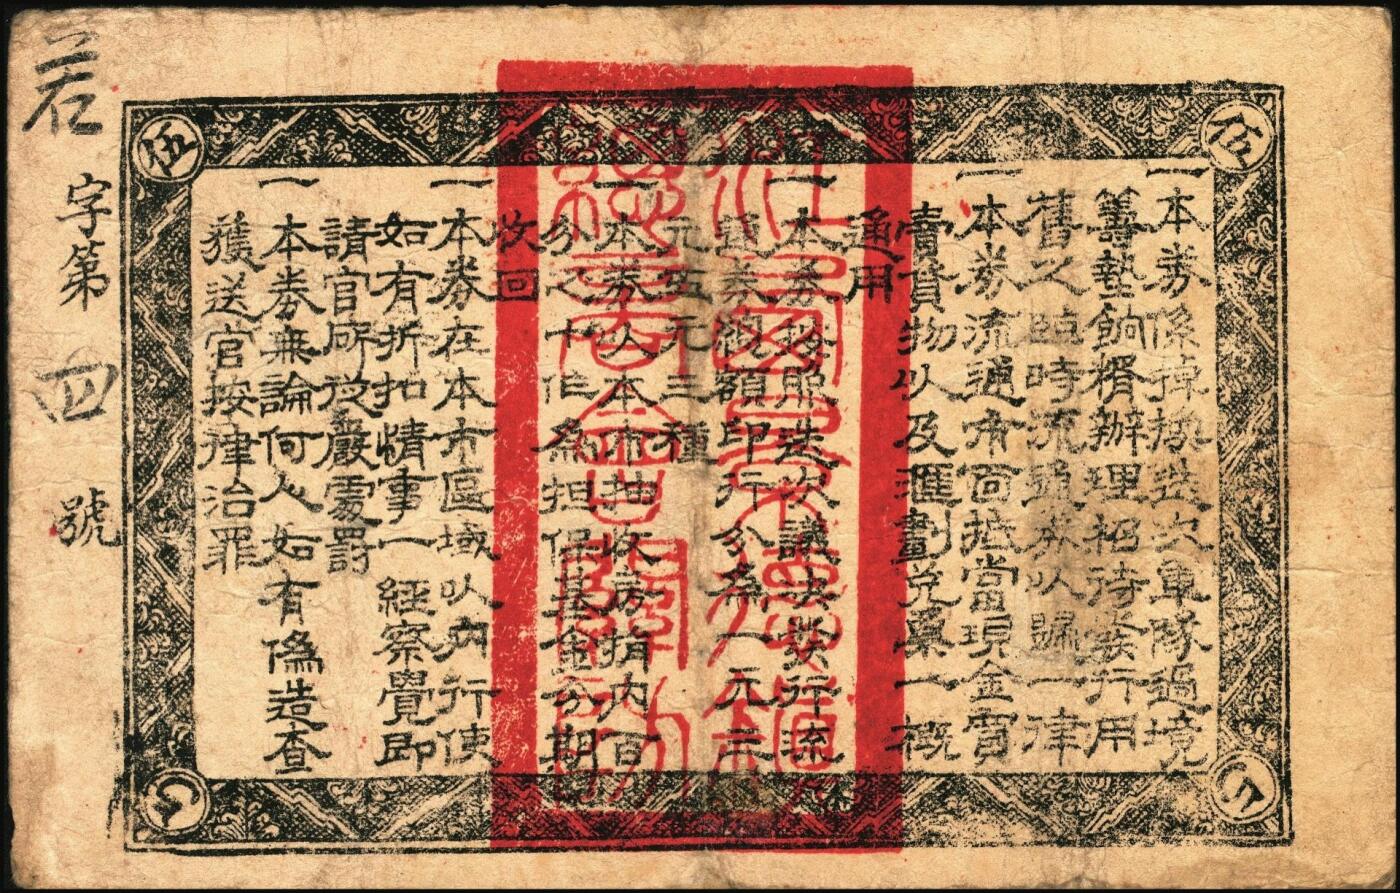 伍
一本券係掉換迭次軍隊過境
籌墊餉糈辦理招待發行用
舊之臨時流通券以歸一律
一本券流通市面抵當現金買
賣貨物以及滙劃兌業一概
通用
一本券按照迭次議決發行流
通券總額印行分為一元三
元伍元三種
一本券以本市抽收房捐內百
分之十作為担保基金分期
收回
一本券在本市區域以內行使
如有折扣情事一經察覺即
請官府從嚴處罰
一本券無論何人如有偽造查
獲送官按律治罪
伍
若字第四號